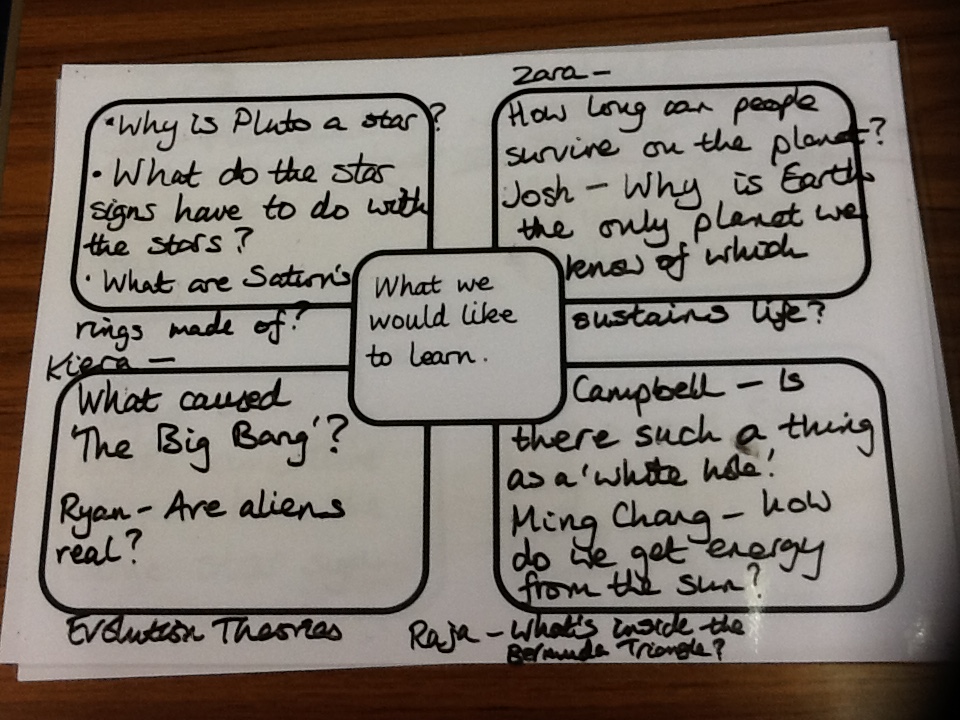 • Why is Pluto a star?
• What do the star
signs have to do with
the stars?
• What are Saturn's
rings made of?
Zara -
How long can people
survive on the planet?
Josh - Why is Earth
the only planet we
know of which
sustains life?
What we
would like
to learn.
Kiera -
What caused
'The Big Bang'?
Ryan - Are aliens
real?
Evolution Theories
Campbell - Is
there such a thing
as a 'white hole'
Ming Chang - how
do we get energy
from the sun?
Raja - What's inside the
Bermuda Triangle?